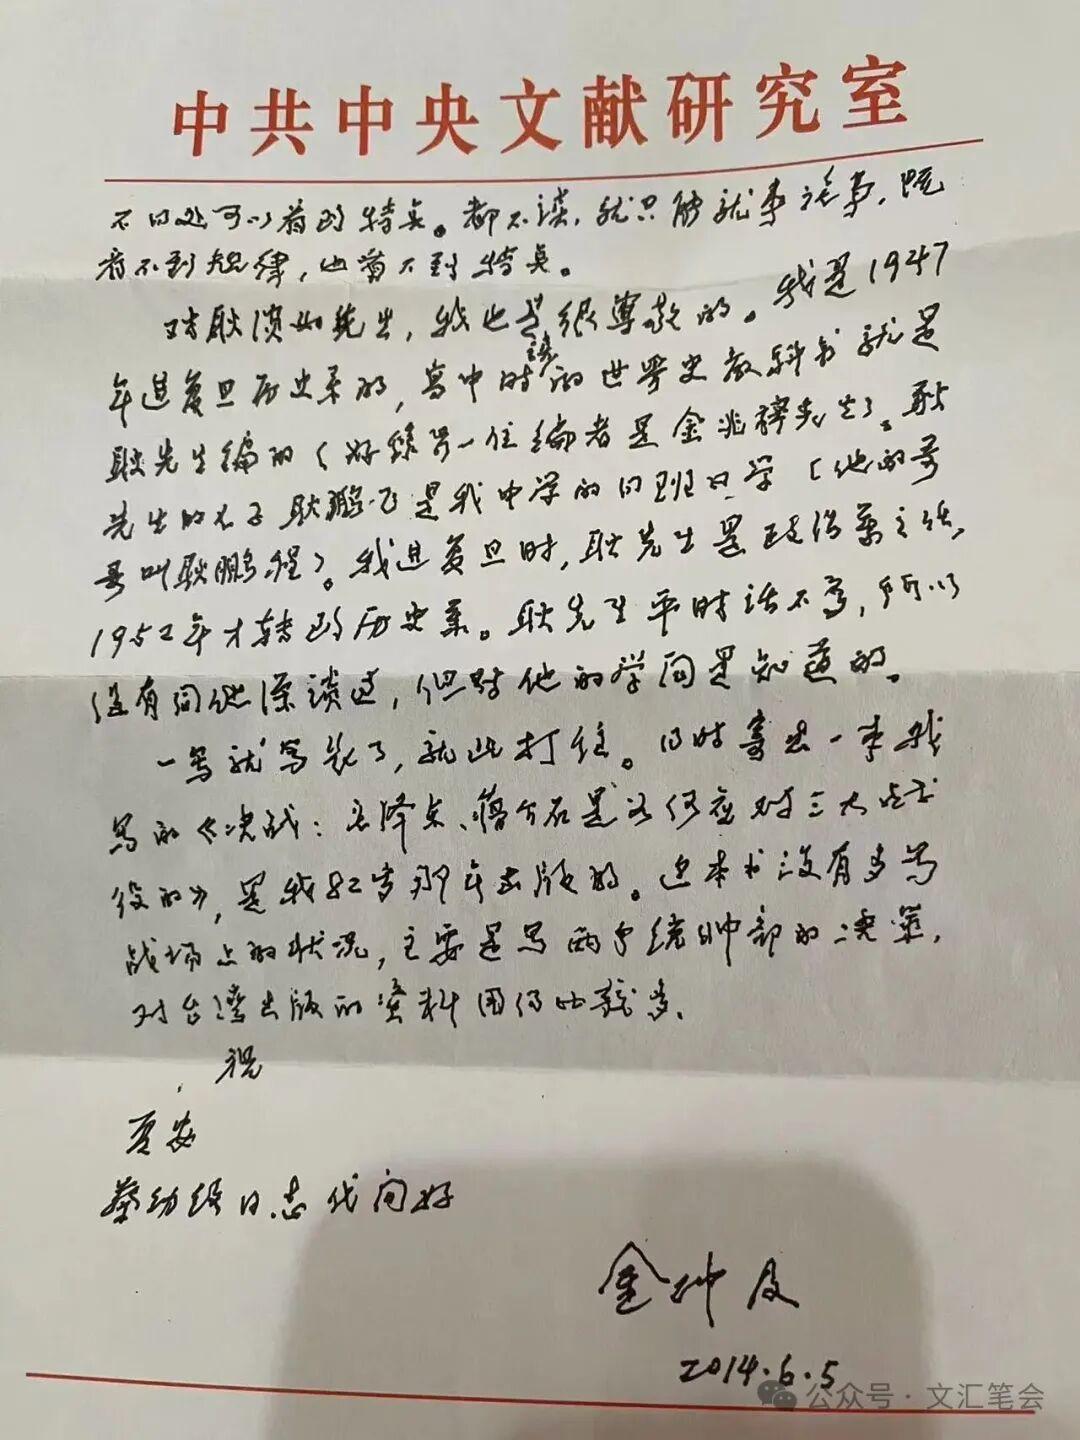 中共中央文献研究室
不同处可以看到特点。都不谈,就只能就事论事,既
看不到规律,也看不到特点。
对耿淡如先生,我也是很尊敬的。我是1947
年进复旦历史系的,高中时读的世界史教科书就是
耿先生编的(好像另一位编者是金兆梓先生)。耿
先生的儿子耿鹏飞是我中学的同班同学(他的哥
哥叫耿鹏程)。我进复旦时,耿先生是政治系主任,
1952年才转到历史系。耿先生平时话不多,所以
没有同他深谈过,但对他的学问是知道的。
一写就写长了,就此打住。同时寄出一本我
写的《决战:毛泽东、蒋介石是如何应对三大战
役的》,是我82岁那年出版的。这本书没有多写
战场上的状况,主要是写两个统帅部的决策,
对台湾出版的资料用得比较多。
祝
夏安
蔡幼纹同志代问好
金冲及
2014.6.5
公众号·文汇笔会